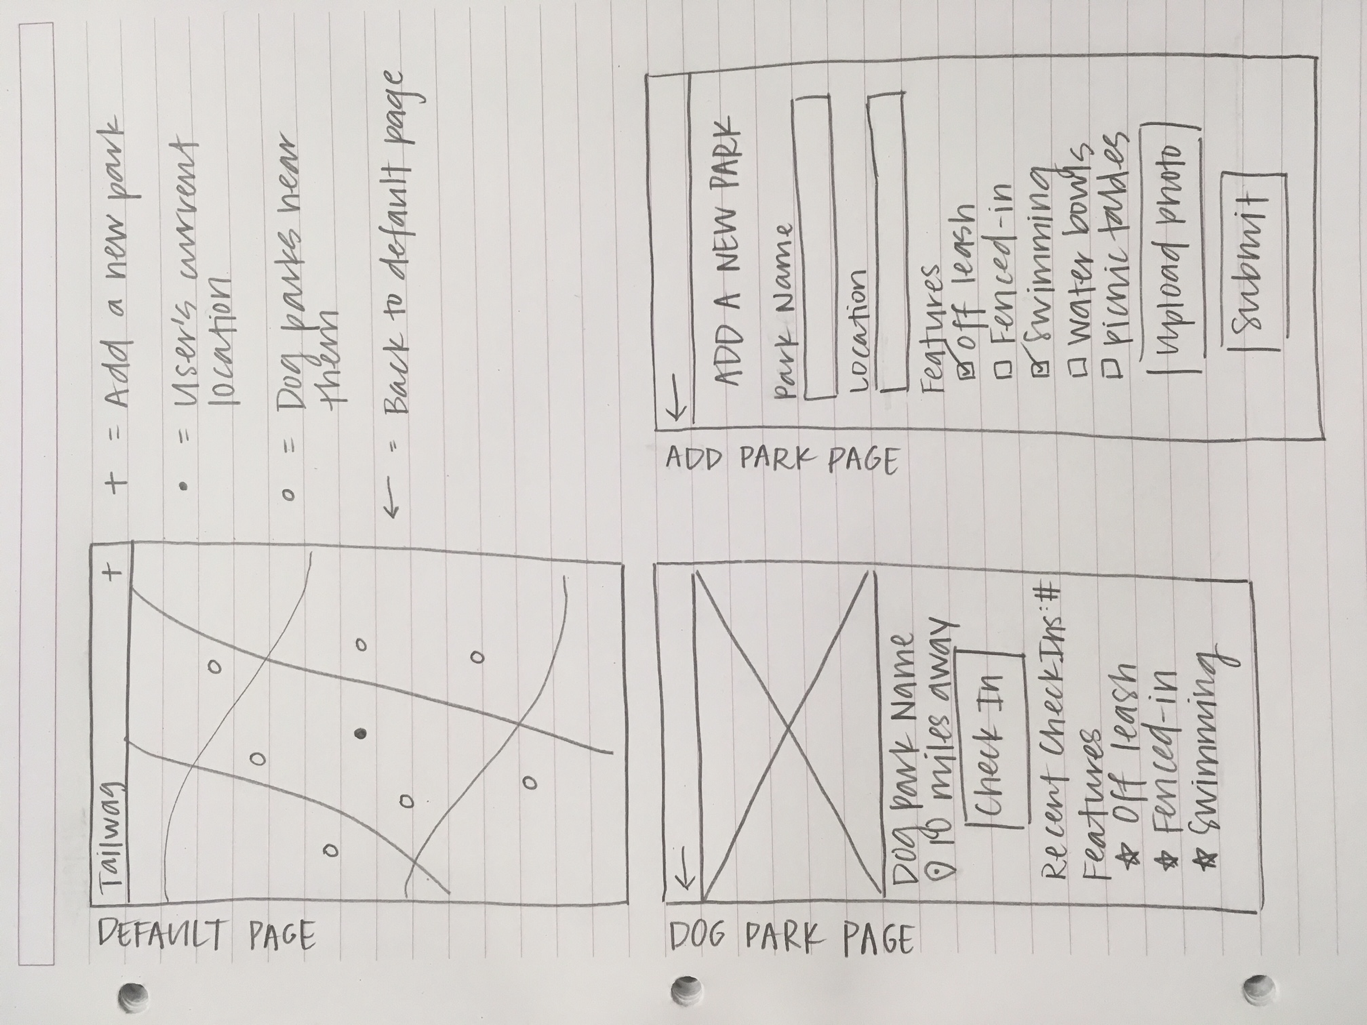 DEFAULT PAGE
Tailwag +
+ = Add a new park
• = User's current
location
○ = Dog parks near
them
← = Back to default page
DOG PARK PAGE
←
Dog Park Name
10 miles away
Check In
Recent Check Ins: #
Features
☆ Off leash
☆ Fenced-in
☆ Swimming
ADD PARK PAGE
←
ADD A NEW PARK
Park Name
Location
Features
☑ Off leash
☐ Fenced-in
☑ Swimming
☐ Water bowls
☐ picnic tables
Upload photo
Submit